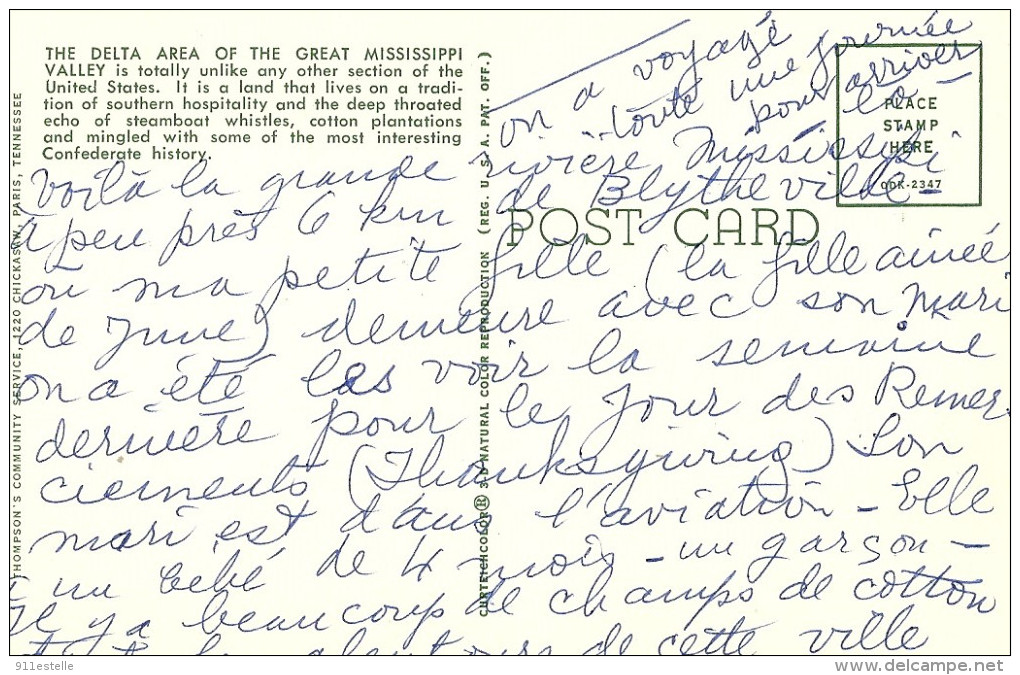 THE DELTA AREA OF THE GREAT MISSISSIPPI
VALLEY is totally unlike any other section of the
United States. It is a land that lives on a tradi-
tion of southern hospitality and the deep throated
echo of steamboat whistles, cotton plantations
and mingled with some of the most interesting
Confederate history.
THOMPSON'S COMMUNITY SERVICE, 1220 CHICKASAW, PARIS, TENNESSEE
CURTEICHCOLOR® 3-D NATURAL COLOR REPRODUCTION (REG. U. S. A. PAT. OFF.)
POST CARD
PLACE
STAMP
HERE
-2347
on a voyagé
toute une journée
pour arriver
là
Voilà la grande rivière Mississipi
à peu près 6 km de Blytheville
où ma petite fille (la fille ainée
de June) demeure avec son mari
on a été les voir la semaine
dernière pour le Jour des Remer
ciements (Thanksgiving) Son
mari est dans l'aviation - Elle
a un bébé de 4 mois - un garçon -
Il y a beaucoup de champs de cotton
alentours de cette ville
911estelle
delcampe.net